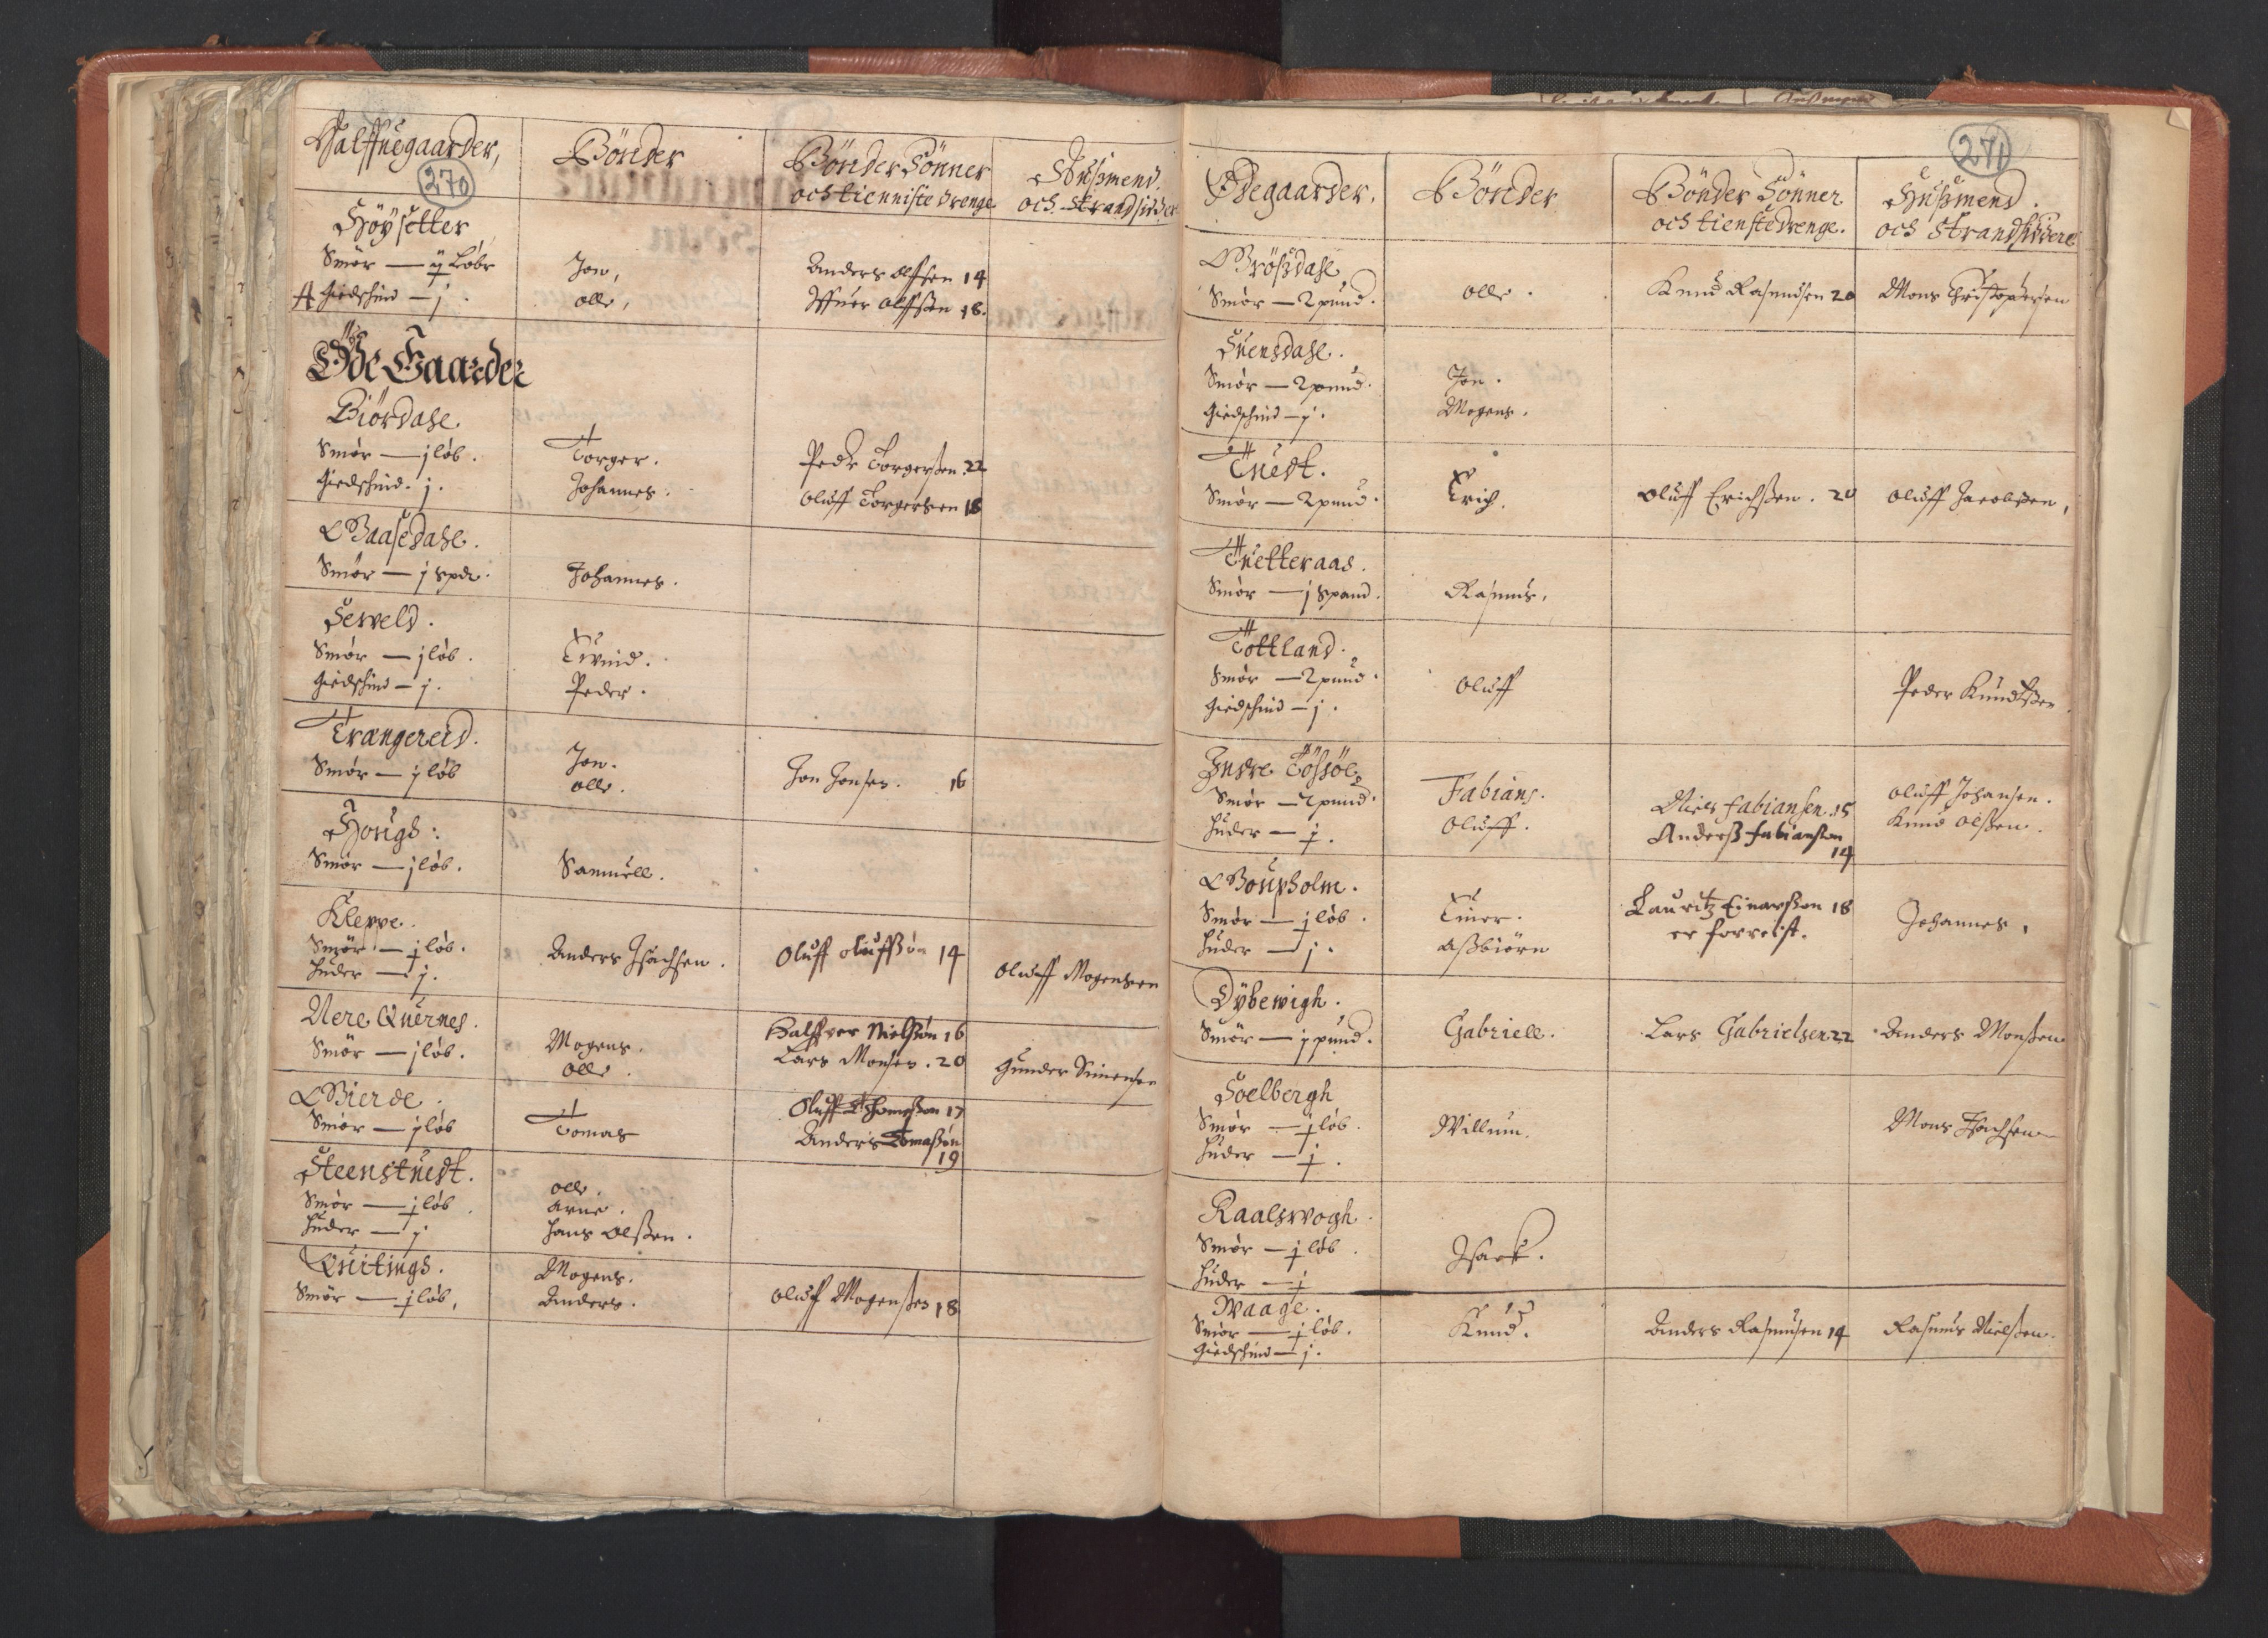 Halffuegaarder,
270
Bönder
Bönder Sönner
och tienniste drenge
Hußmend.
och Strandsidder
Höÿsetter
Smör — ij Löbr
Giedschind — j
Jon,
olle,
Anders olffsen 14
Iffuer olffsen 18.
Öde Gaarder
Biördahl.
Smör — j löb.
Giedschind. j.
Torger.
Johannes.
Peder Torgerßen. 22
Oluff Torgersen 18
Baasedahl.
Smör — j spdt.
Johannes.
Seweld.
Smör — j löb.
Giedschind — j.
Eivind.
Peder.
Trangereid.
Smör — j löb
Jon.
olle.
Jon Jonsen. 16
Hougs:
Smör — j löb.
Samuell.
Kleppe.
Smör — j löb.
Huder — j.
Anders Isachsen.
Oluff oluffßön 14
oluff Mogensen
Nere Quernes.
Smör — j löb.
Mogens.
olle.
Halffver Nielßön 16
Lars Monsen. 20
Gunder Simensen
Gierde.
Smör — j löb
Tomas
Oluff Thomeßon 17
Anders Tomaßön
19
Steenstuedt.
Smör — j löb
Huder — j
olle.
Arne.
Hans Olßen.
Quitings.
Smör — j löb,
Mogens.
Anders.
oluff Mogenßen 18
271
Ödegaarder.
Bönder
Bönder Sönner
och tienstedrenge.
Hußmend.
och Strandsiddere
Brößdahl
Smör — 2 pund.
olle.
Knud Rasmusen 20
Mons Christophersen
Suensdahl.
Smör — 2 pund.
Giedschind — j.
Jon.
Mogens.
Tuedt.
Smör — 2 pund.
Erich.
Oluff Erichßen. 20
oluff Jacobsen,
Tuetteraas.
Smör — j Spand.
Rasmus,
Töttland.
Smör — 2 pund.
Giedschind — j.
oluff
Peder Knudtßen
Indre Tößöe
Smör — 2 pund.
Huder — j.
Fabians.
oluff.
Niels fabiansen. 15
Anderß fabianßen
14
oluff Johansen.
Knud olßen.
Bouffholm.
Smör — j löb.
Huder — j.
Einer.
Aßbiörn
Lauritz Einarßen 18
er forreist.
Johannes,
Dÿbewigh.
Smör — j pund.
Gabriell.
Lars Gabrielsen 22
Anders Monßen
Soelbergh
Smör — j löb.
Huder — j.
Willum.
Mons Isachsen
Raalswogh
Smör — j löb.
Huder — j
Isack.
Waage.
Smör — j löb.
Giedschind — j.
Knud.
Anders Rasmusen 14
Rasmus Nielßen.